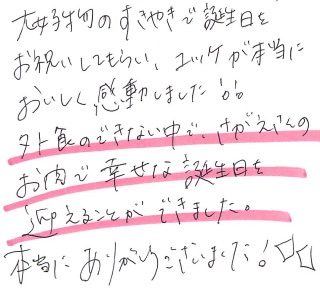 大好物のすきやきで誕生日を
お祝いしてもらい、ユッケが本当に
おいしく感動しました!!
外食のできない中で、さがえさんの
お肉で幸せな誕生日を
迎えることができました。
本当にありがとうございました!